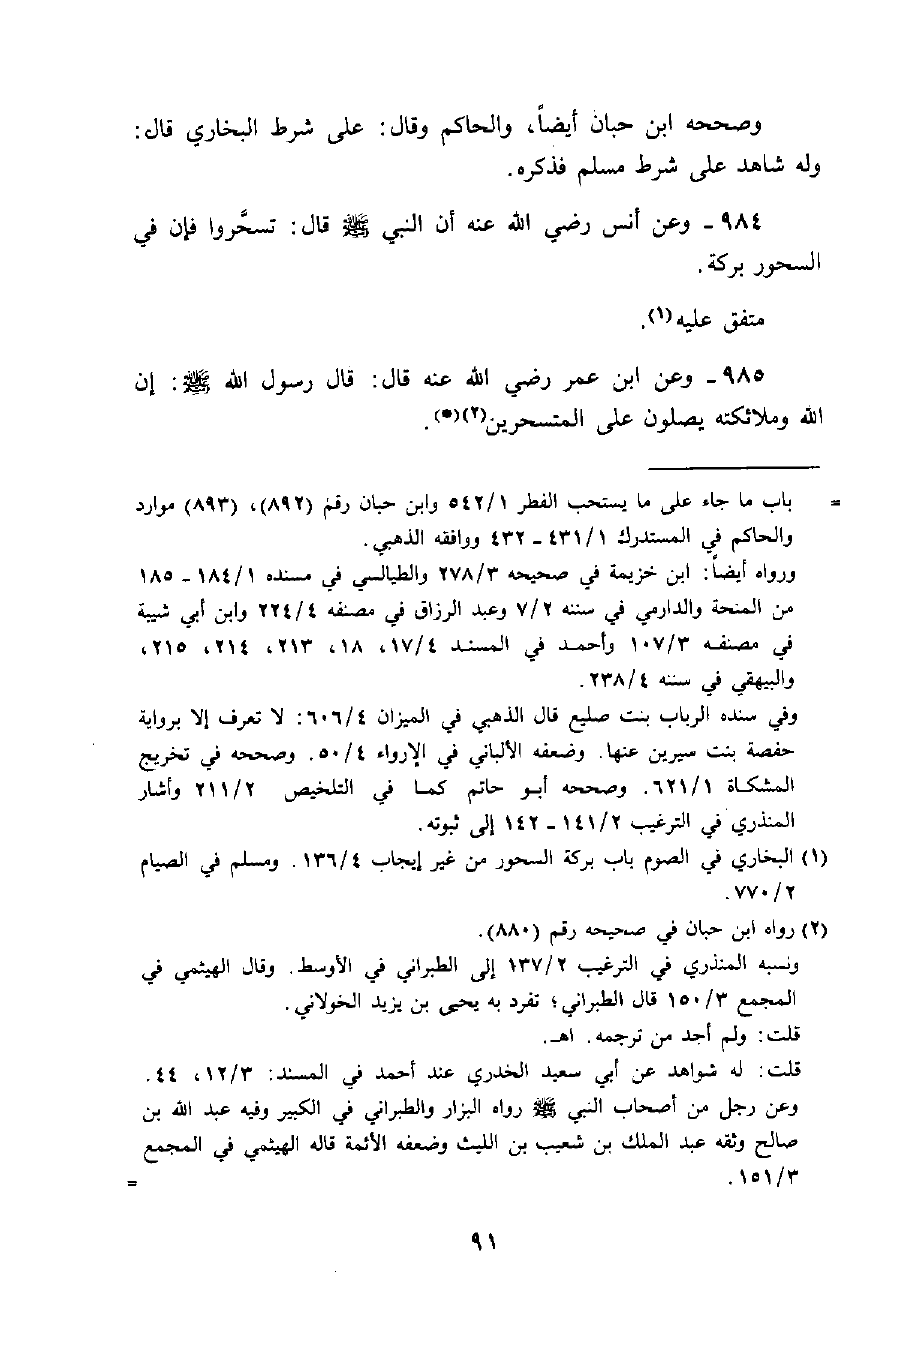 وصححه ابن حبان أيضاً، والحاكم وقال: على شرط البخاري قال:
وله شاهد على شرط مسلم فذكره.
٩٨٤ - وعن أنس رضي الله عنه أن النبي ﷺ قال: تسحَّروا فإن في
السحور بركة.
متفق عليه(١).
٩٨٥ - وعن ابن عمر رضي الله عنه قال: قال رسول الله ﷺ: إن
الله وملائكته يصلون على المتسحرين(٢)(*).
= باب ما جاء على ما يستحب الفطر ٥٤٢/١ وابن حبان رقم (٨٩٢)، (٨٩٣) موارد
والحاكم في المستدرك ٤٣١/١ - ٤٣٢ ووافقه الذهبي.
ورواه أيضاً: ابن خزيمة في صحيحه ٢٧٨/٣ والطيالسي في مسنده ١٨٤/١ - ١٨٥
من المنحة والدارمي في سننه ٧/٢ وعبد الرزاق في مصنفه ٢٢٤/٤ وابن أبي شيبة
في مصنفه ١٠٧/٣ وأحمد في المسند ١٧/٤، ١٨، ٢١٣، ٢١٤، ٢١٥،
والبيهقي في سننه ٢٣٨/٤.
وفي سنده الرباب بنت صليع قال الذهبي في الميزان ٦٠٦/٤: لا تعرف إلا برواية
حفصة بنت سيرين عنها. وضعفه الألباني في الإرواء ٥٠/٤. وصححه في تخريج
المشكاة ٦٢١/١. وصححه أبو حاتم كما في التلخيص ٢١١/٢ وأشار
المنذري في الترغيب ١٤١/٢ - ١٤٢ إلى ثبوته.
(١) البخاري في الصوم باب بركة السحور من غير إيجاب ١٣٦/٤. ومسلم في الصيام
٧٧٠/٢.
(٢) رواه ابن حبان في صحيحه رقم (٨٨٠).
ونسبه المنذري في الترغيب ١٣٧/٢ إلى الطبراني في الأوسط. وقال الهيثمي في
المجمع ١٥٠/٣ قال الطبراني؛ تفرد به يحيى بن يزيد الخولاني.
قلت: ولم أجد من ترجمه. اهـ.
قلت: له شواهد عن أبي سعيد الخدري عند أحمد في المسند: ١٢/٣، ٤٤.
وعن رجل من أصحاب النبي ﷺ رواه البزار والطبراني في الكبير وفيه عبد الله بن
صالح وثقه عبد الملك بن شعيب بن الليث وضعفه الأئمة قاله الهيثمي في المجمع
١٥١/٣. =
٩١